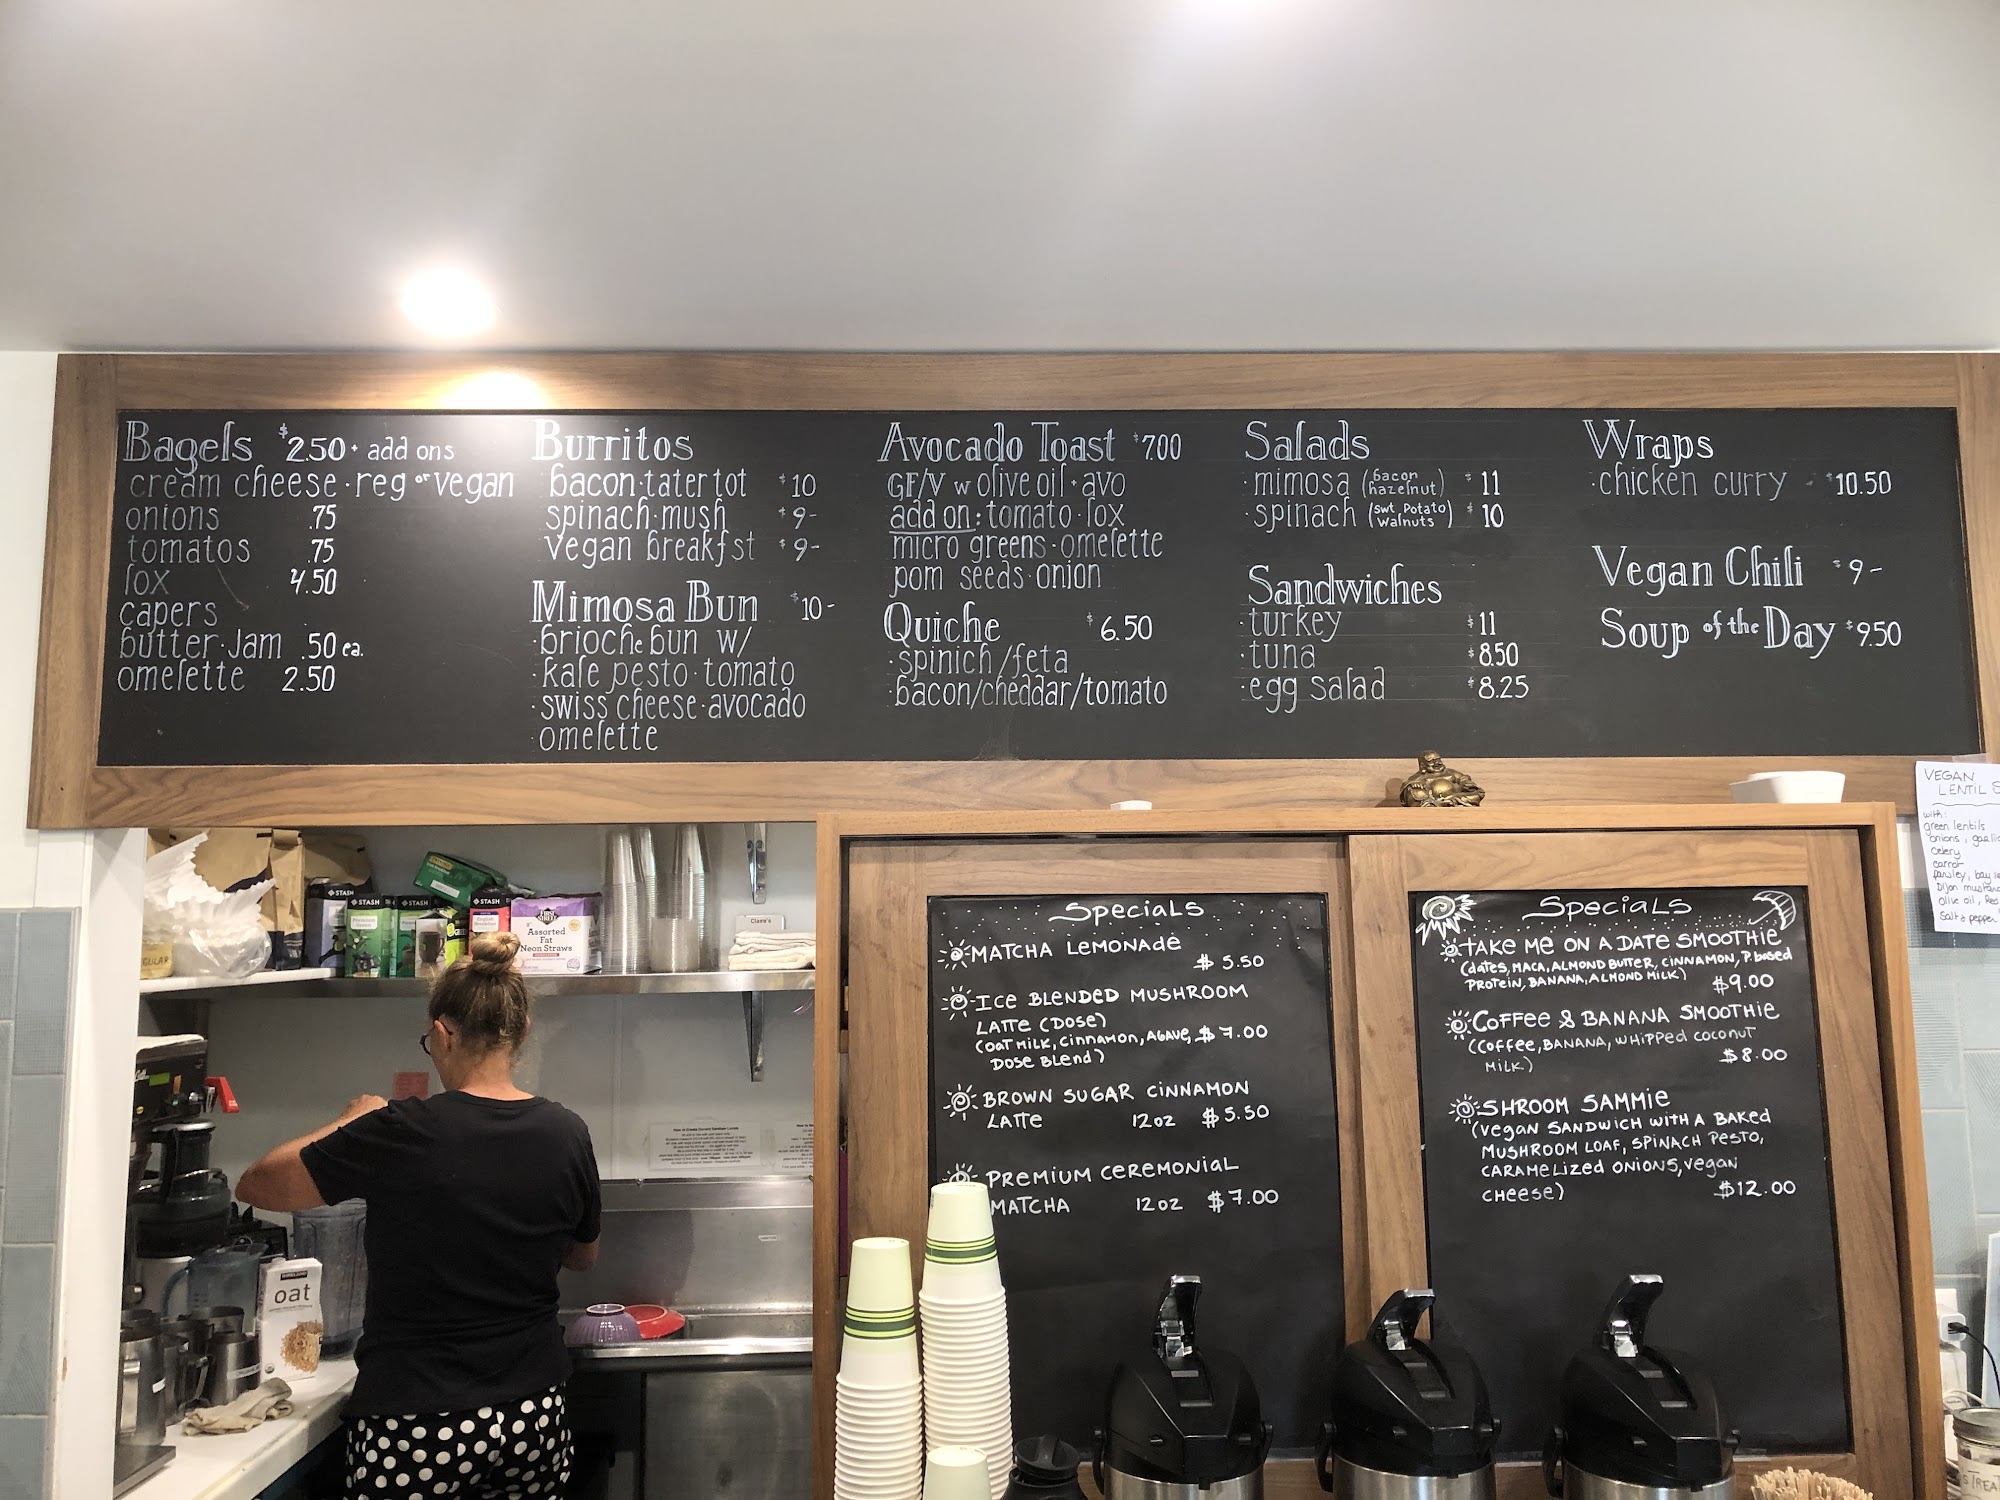 Bagels $2.50 + add ons
cream cheese · reg or vegan
onions .75
tomatos .75
lox 4.50
capers
butter · Jam .50 ea.
omelette 2.50
Burritos
bacon · tater tot $10
spinach · mush $9-
vegan breakfst $9-
Mimosa Bun $10-
· brioche bun w/
· kale pesto · tomato
· swiss cheese · avocado
· omelette
Avocado Toast $7.00
GF/V w olive oil + avo
add on: tomato · lox
micro greens · omelette
pom seeds · onion
Quiche $6.50
· spinich/feta
· bacon/cheddar/tomato
Salads
· mimosa (bacon hazelnut) $11
· spinach (swt Potato Walnuts) $10
Sandwiches
· turkey $11
· tuna $8.50
· egg salad $8.25
Wraps
· chicken curry $10.50
Vegan Chili $9-
Soup of the Day $9.50
VEGAN
LENTIL S
with:
green lentils
onions, garlic
celery
carrot
parsley, bay
Dijon mustard
olive oil, Red
Salt & pepper
Specials
MATCHA LEMONADE
$5.50
ICE BLENDED MUSHROOM
LATTE (DOSE)
(OAT MILK, CINNAMON, AGAVE, $7.00
DOSE BLEND)
BROWN SUGAR CINNAMON
LATTE 12oz $5.50
PREMIUM CEREMONIAL
MATCHA 12oz $7.00
Specials
TAKE ME ON A DATE SMOOTHIE
(dates, MACA, ALMOND BUTTER, CINNAMON, P.based
PROTEIN, BANANA, ALMOND MILK)
$9.00
COFFEE & BANANA SMOOTHIE
(COFFEE, BANANA, WHIPPED COCONUT
MILK) $8.00
SHROOM SAMMIE
(VEGAN SANDWICH WITH A BAKED
MUSHROOM LOAF, SPINACH PESTO,
CARAMELIZED ONIONS, VEGAN
CHEESE) $12.00
STASH
STASH
STASH
STASH
Premium
Green
English
Breakfast
FIRST
STREET
Assorted
Fat
Neon Straws
Claire's
GULAR
KIRKLAND
oat